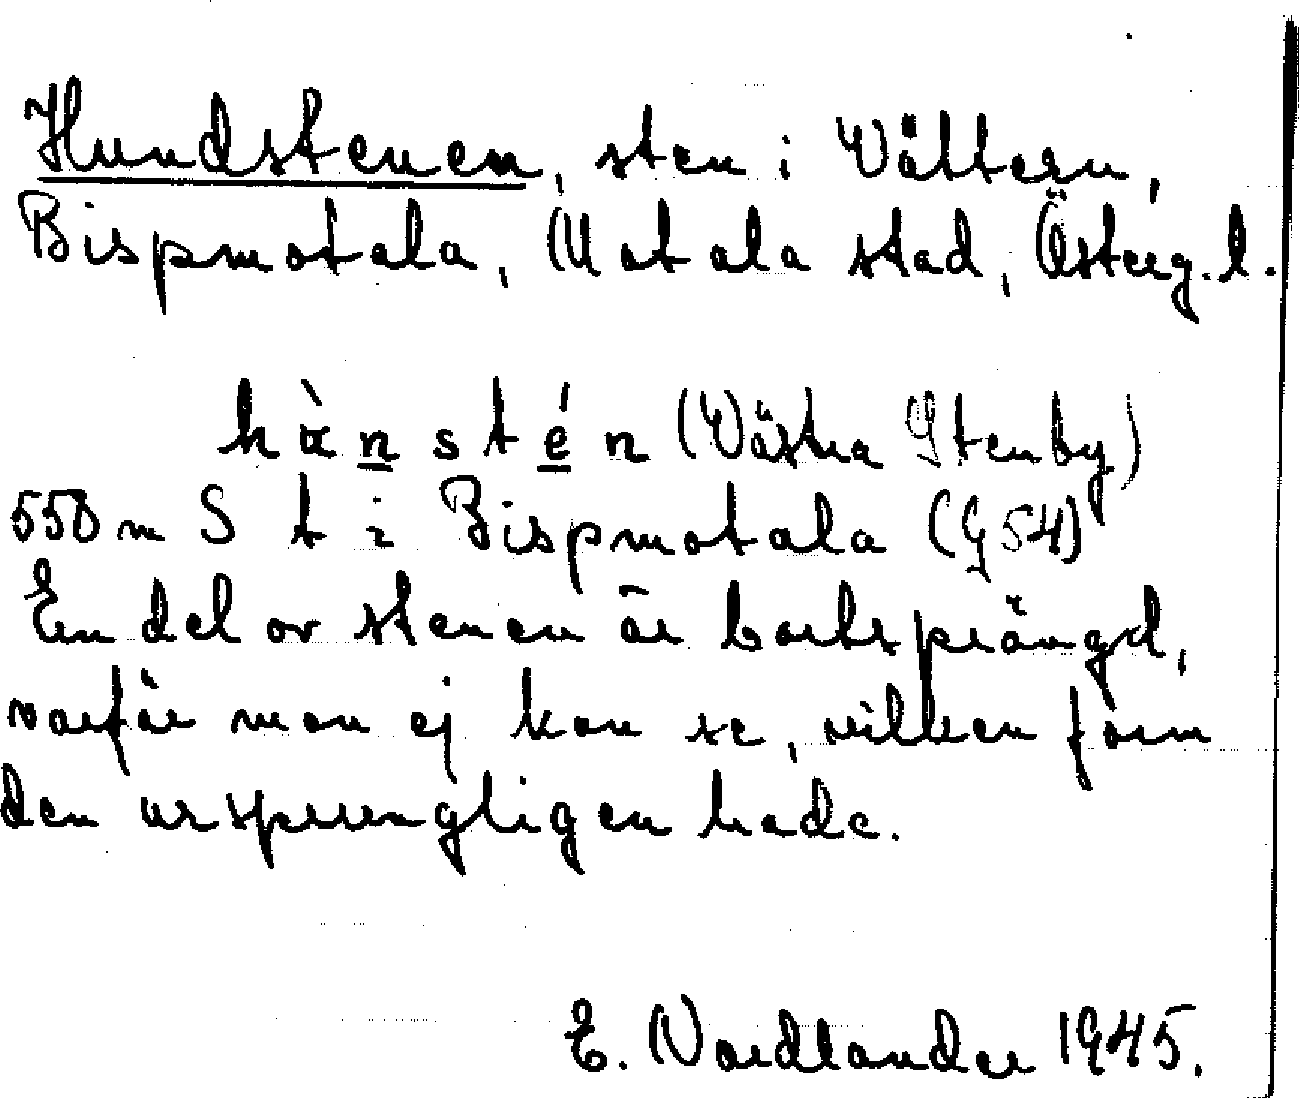 Hundstenen, sten i Vättern,
Bispmotala, Motala stad, Österg. l.
hànstén (Västra Stenby)
550 m S t i Bispmotala (G54)
En del av stenen är bortsprängd,
varför man ej kan se, vilken form
den ursprungligen hade.
E. Nordlander 1945.